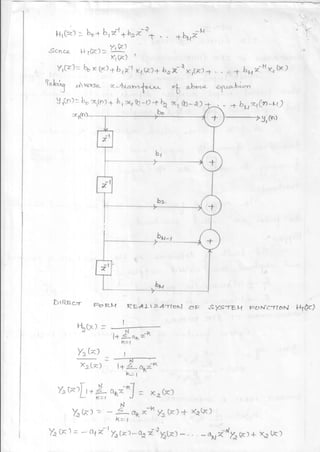 H₁(z) = b₀ + b₁z⁻¹ + b₂z⁻² + . . + b_M z^-M
Since H₁(z) = Y₁(z) / X₁(z) ,
Y₁(z) = b₀ X₁(z) + b₁z⁻¹ X₁(z) + b₂ z⁻² X₁(z) + . . . + b_M z^-M X₁(z)
Taking inverse z-transform of above equation
y₁(n) = b₀ x₁(n) + b₁ x₁(n-1) + b₂ x₁(n-2) + . . + b_M x₁(n-M)
x₁(n) b₀ + y₁(n)
z⁻¹
b₁ +
z⁻¹
b₂ +
b_M-1 +
z⁻¹
b_M
DIRECT FORM REALIZATION OF SYSTEM FUNCTION H₁(z)
H₂(z) = 1 / 1 + Σ_{k=1}^{N} a_k z^-k
Y₂(z) / X₂(z) = 1 / 1 + Σ_{k=1}^{N} a_k z^-k
Y₂(z) [ 1 + Σ_{k=1}^{N} a_k z^-k ] = X₂(z)
Y₂(z) = - Σ_{k=1}^{N} a_k z^-k Y₂(z) + X₂(z)
Y₂(z) = - a₁ z⁻¹ Y₂(z) - a₂ z⁻² Y₂(z) - . . - a_N z^-N Y₂(z) + X₂(z)